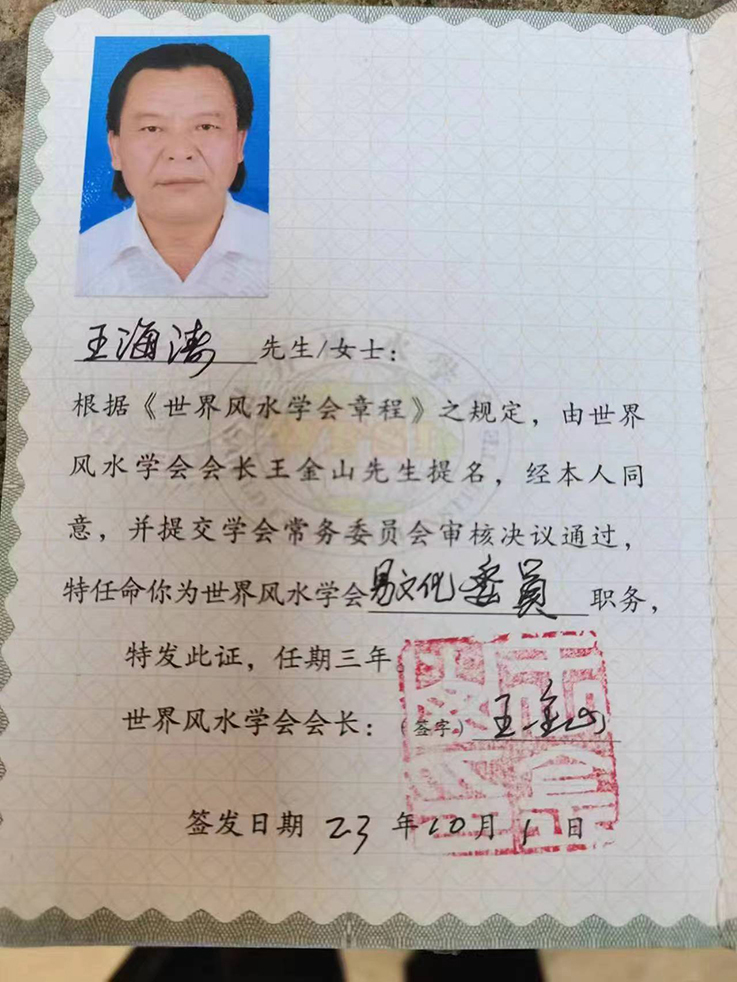 王海涛 先生/女士：
根据《世界风水学会章程》之规定，由世界
风水学会会长王金山先生提名，经本人同
意，并提交学会常务委员会审核决议通过，
特任命你为世界风水学会易文化委员职务，
特发此证，任期三年
世界风水学会会长：（签字）王金山
签发日期 23 年 10 月 1 日